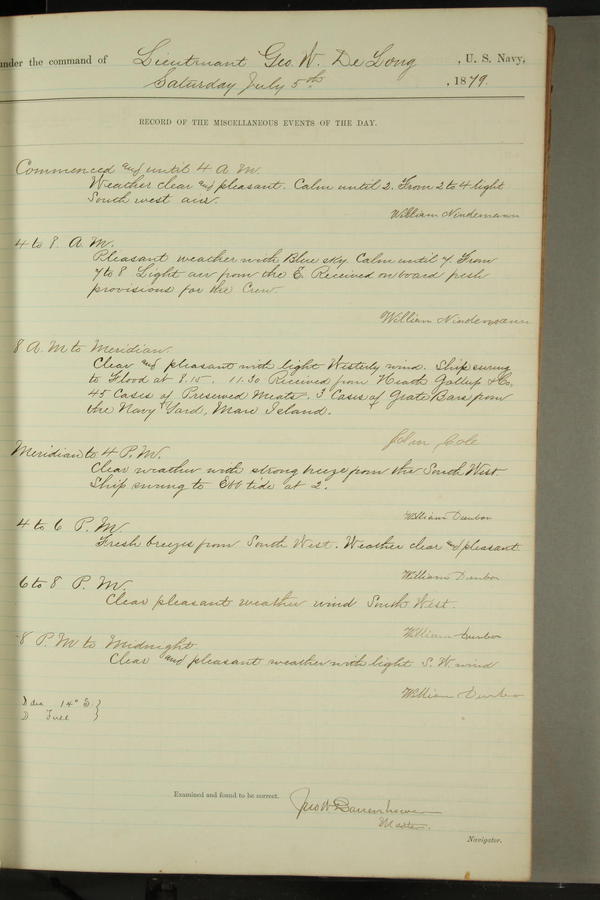 under the command of Lieutenant Geo. W. De Long, U. S. Navy,
Saturday July 5th, 1879.
RECORD OF THE MISCELLANEOUS EVENTS OF THE DAY.
Commenced and until 4 A. M.
Weather clear and pleasant. Calm until 2. From 2 to 4 light
South west airs.
William Nindemann
4 to 8. A. M.
Pleasant weather with Blue sky. Calm until 7. From
7 to 8 Light air from the E. Received on board fresh
provisions for the Crew
William Nindemann
8 A. M to Meridian.
Clear and pleasant with light Westerly wind. Ship swung
to Flood at 8.15. 11.30 Received from Heath Gallup & Co.
45 Cases of Preserved Meats. 3 Cases of Grate Bars from
the Navy Yard, Mare Island.
John Cole
Meridian to 4 P. M.
Clear weather with strong breeze from the South West
Ship swung to Ebb tide at 2.
William Dunbar
4 to 6 P. M.
Fresh breezes from South West. Weather clear and pleasant.
William Dunbar
6 to 8 P. M.
Clear pleasant weather wind South West.
William Dunbar
8 P. M to Midnight.
Clear and pleasant weather with light S. W. wind
William Dunbar
14° E }
Full }
Examined and found to be correct.
Master.
Navigator.